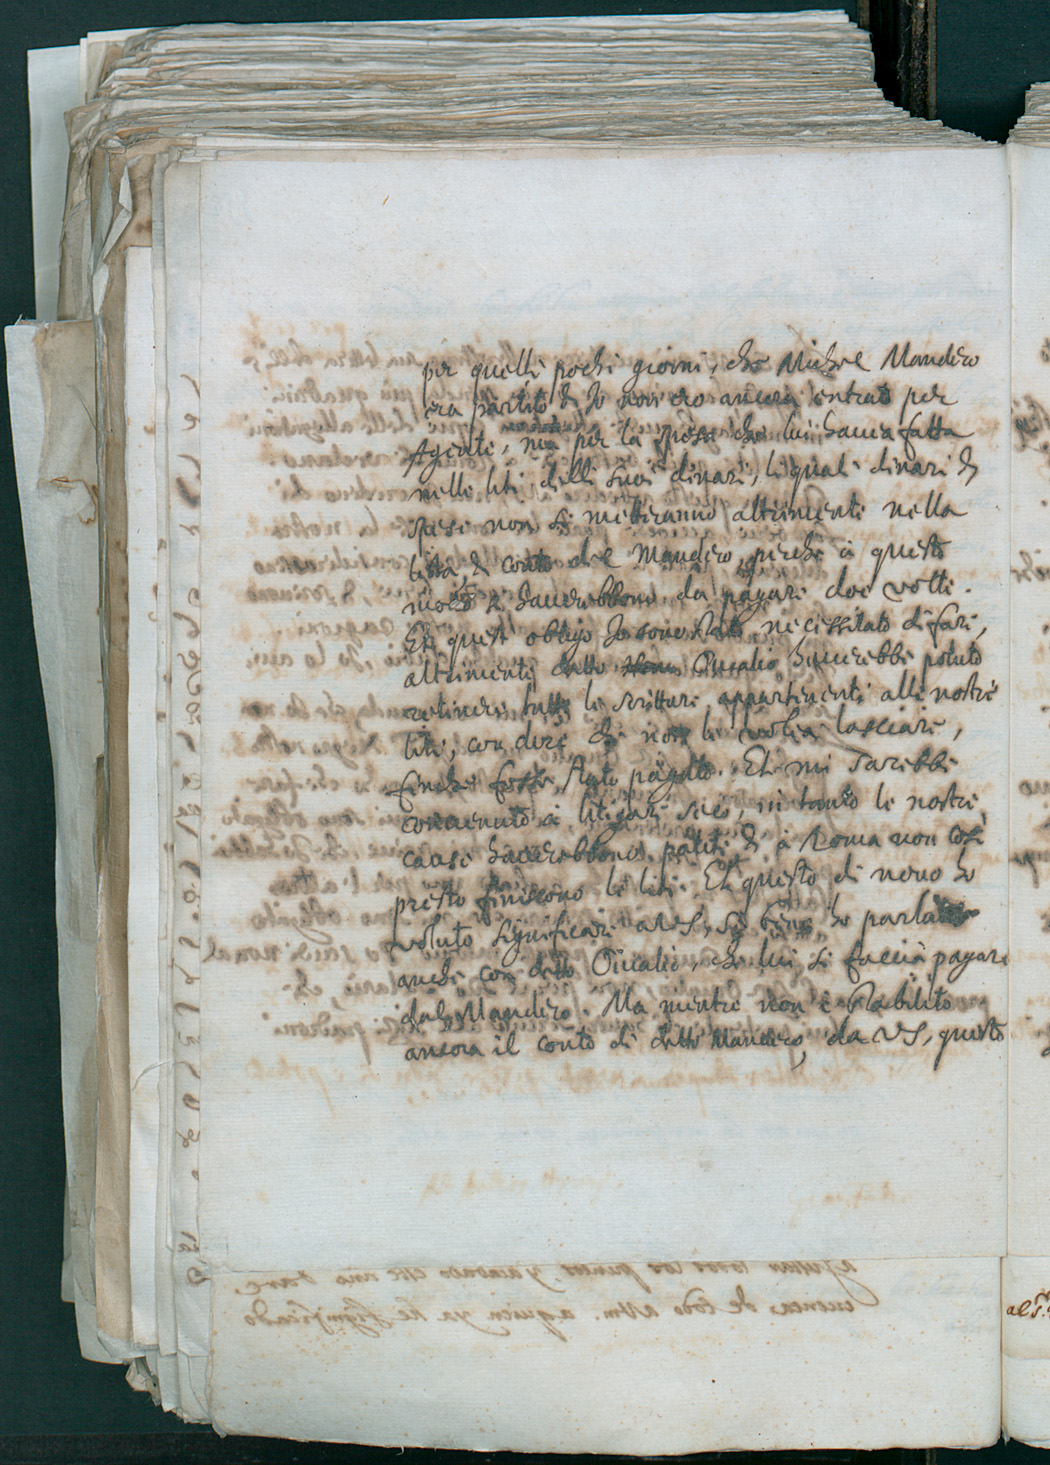 per quelli pochi giorni, che Michel Mandero
era partito & Io non ero ancora entrato per
Agente, ma per la spesa che lui hauea fatta
nelle liti delli suoi dinari, li quali dinari &
spese non si metteranno altrimenti nella
lista & conto del Mandero, perche a questo
modo si hauerebbono da pagare doe volte.
Et quest obligo Io sono stato necessitato di fare,
altrimente detto Oucalio hauerebbe potuto
retinere tutte le scritture appartinenti alle nostre
liti, con dire che non le voleva lasciare,
finche fosse stato pagato. Et mi sarebbe
conuenuto a litigare seco, in tanto le nostre
cause hauerebbono patite & à Roma non cosi
presto finiscono le liti. Et questo di nouo ho
voluto significare a VS, si bene ho parlato
anche con detto Oucalio, che lui si faccia pagare
dal Mandero. Ma mentre non è stabilito
ancora il conto di detto Mandero, da VS, questo